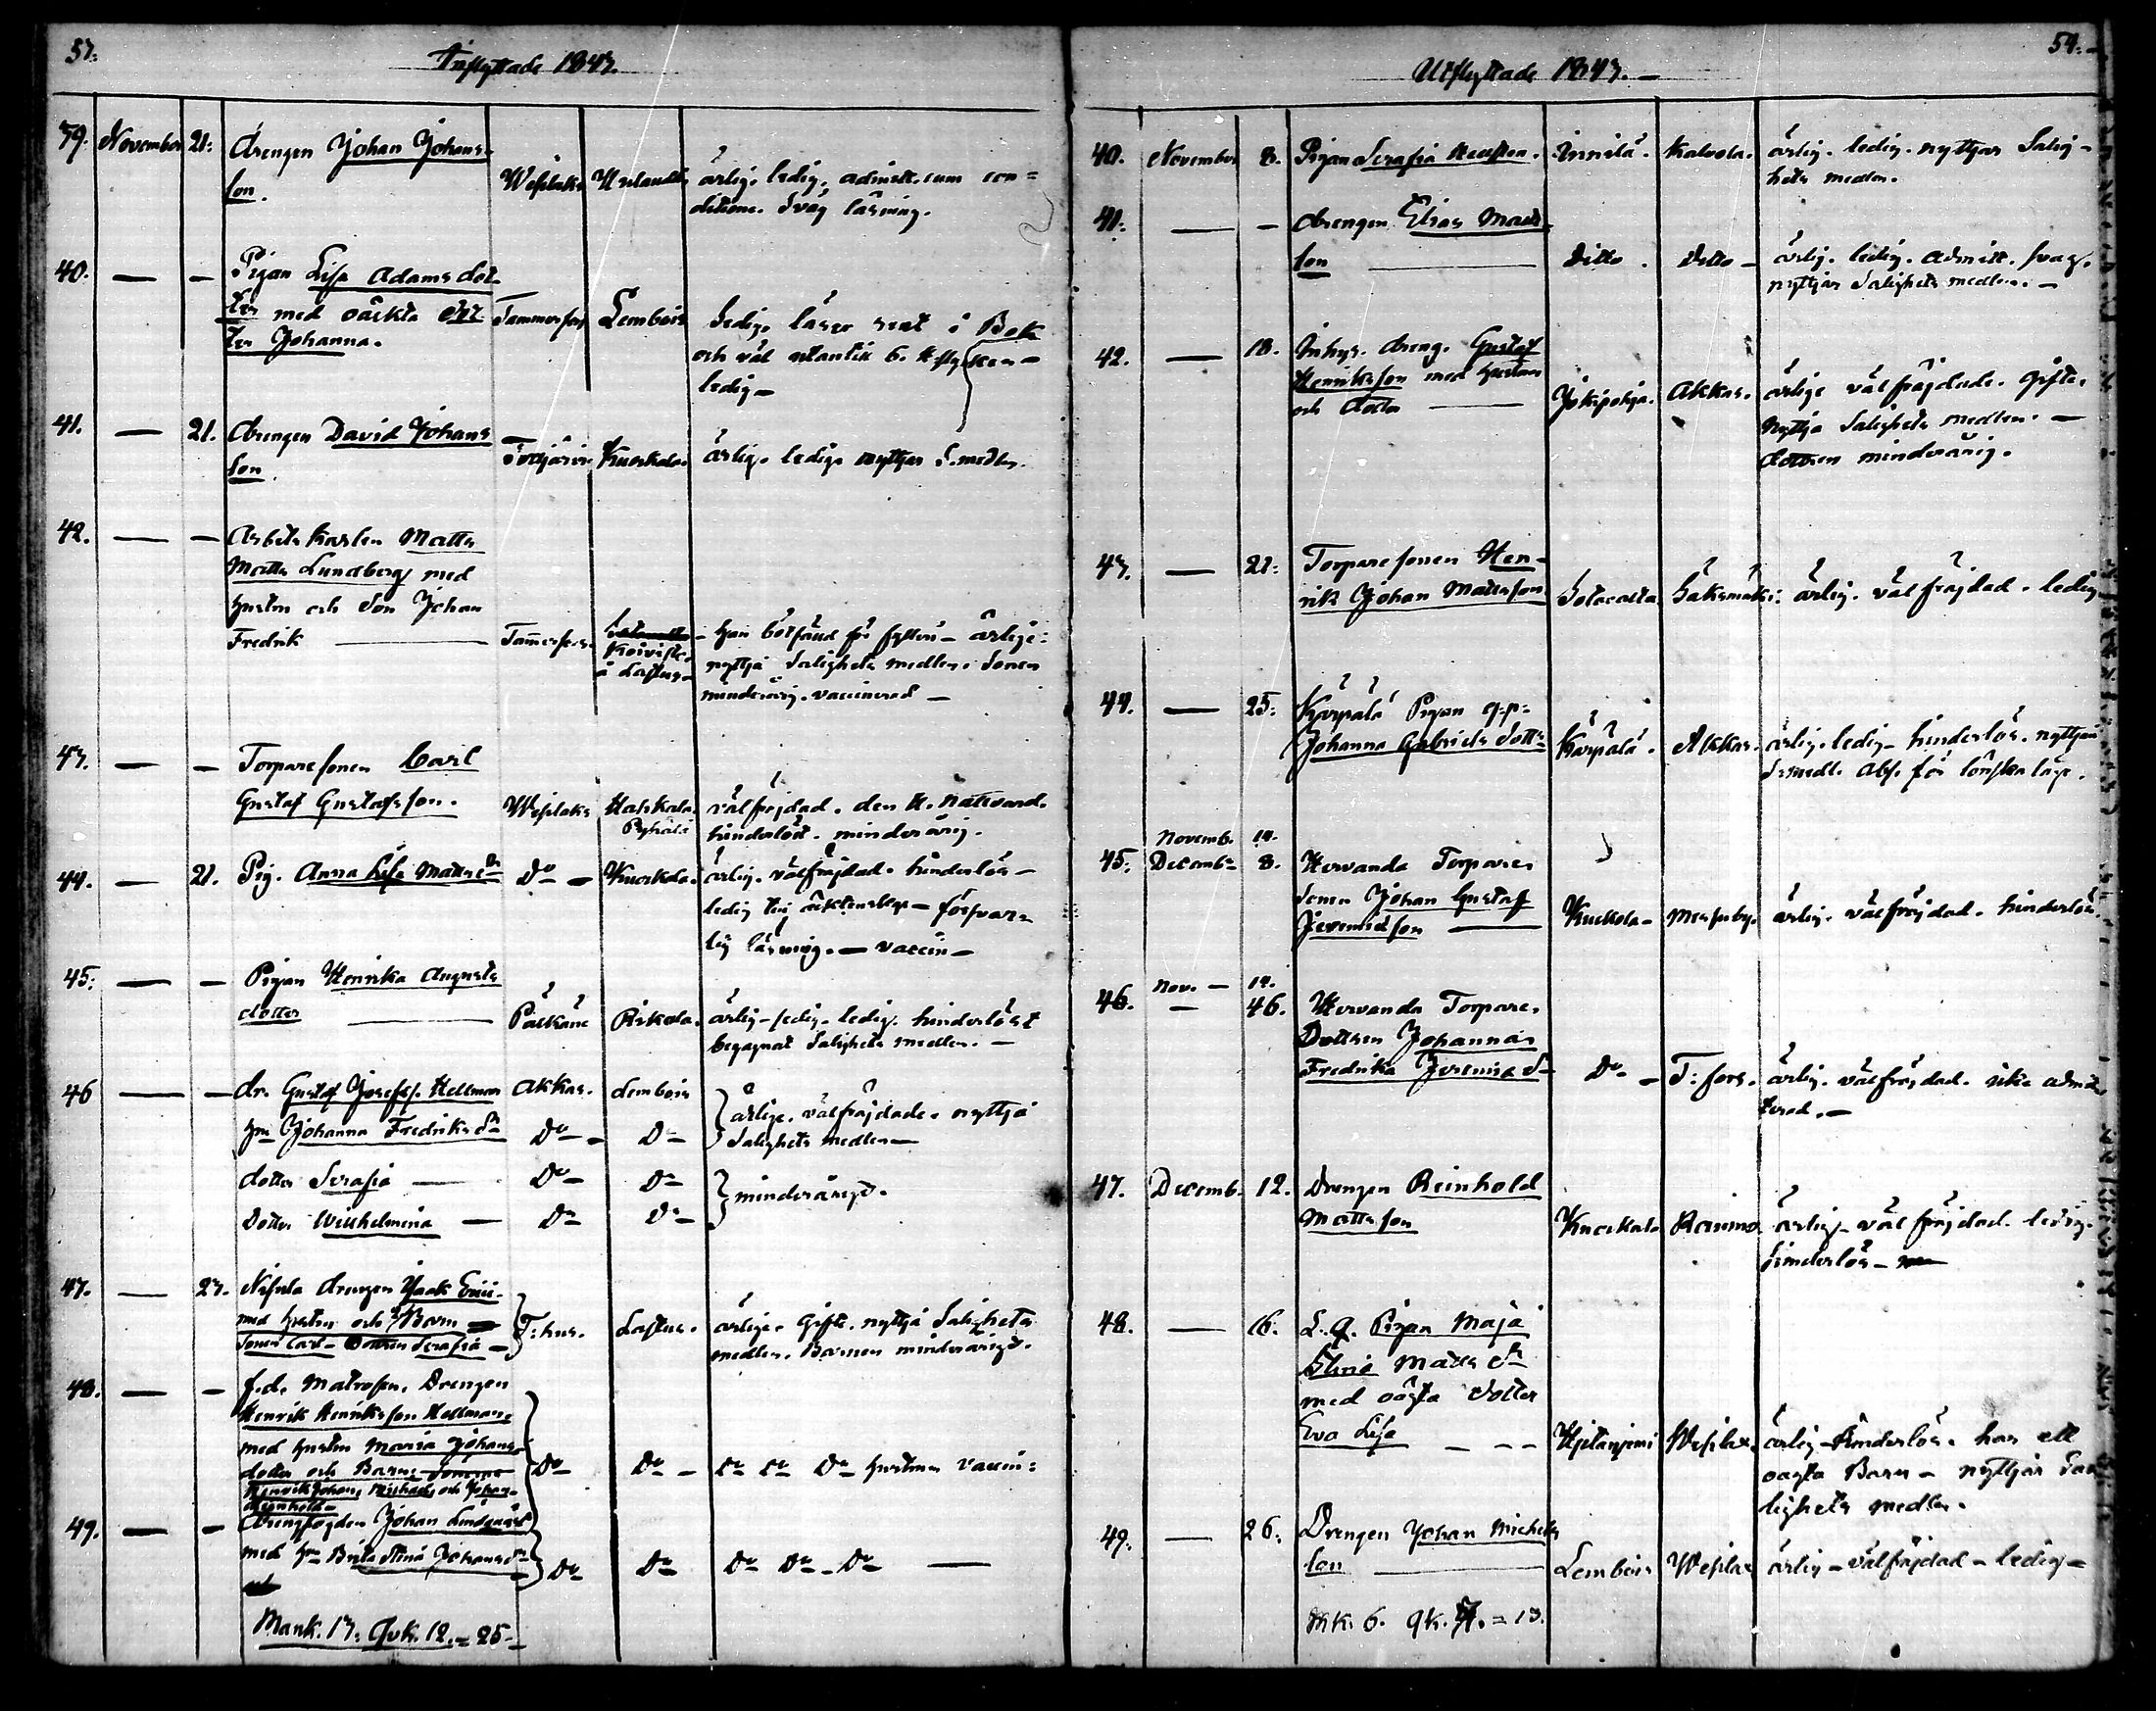 53.
Inflyttade 1843.
39. November 21. drengen Johan Johans-
son.
Wesilaks
ärlig. ledig. admitt. cum con=
ditione. Svag läsning.
40. — — Pigan Lisa Adamsdot-
ter med oäckta dot-
ter Johanna.
Tammerfors Lembois ledig. läser rent i Bok
och väl utantill 6.
ledig —
41. — 21. drengen David Johans
son.
Kuokkala. ärlig. ledig. nyttjar S. medlen.
42. — — Arbets karlen Matts
Matts Lundberg med
hustru och Son Johan
Fredrik —
Tammerfors. Koivisto
i Lastus —
han bötfäld för fylleri — ärlige:
nyttja Salighets medlen. Sonen
minderårig. vaccinerad —
43. — — Torpare sonen Carl
Gustaf Gustafsson.
Wesilaks
Pyhälä
välfrejdad. den H. Nattvard.
hinderlöst. minderårig.
44. — 21. Pig. Anna Lisa Mattsdr
Do — Kuokkala. ärlig. välfräjdad. hinderlös —
ledig till äcktenskap — försvar=
lig läsning. — vaccin —
45. — — Pigan Henrika Augusta
dotter —
Pälkäne Riskala. ärlig — ledig. hinderlöst
begagnat Salighets medlen. —
46 — — dr. Gustaf Josefss. Hellman Akkas. Lembois
hu Johanna Fredriksdr Do — Do
ärlige. välfräjdade. nyttja
Salighets medlen —
dotter Serafia — Do Do
minderårige.
Dotter Wilhelmina — Do Do —
47. — 23. drengen Isaak
med hustru och 2 Barn
Sonen Carl — Dottren Serafia —
T: hus. Lastus. ärlige. Gifte. nyttja Salighets
medlen. Barnen minderårige.
48. — — f.d. Matrosen, Drengen
Henrik Henriksson Hellman,
med hustru Maria Johans
dotter och Barn
Henrik Johan, Michael, och Johan
Reinhold —
Do Do — Do Do Do hustrun vaccin:
49. — — drengfogden Johan Lindqvist
med hu Brita Stina Johansdr
Do Do Do Do — Do —
Mank. 13. Qvk. 12. = 25 —
54. —
Utflyttade 1843. —
40. November 8. Pigan Serafia
Kalvola. ärlig. ledig. nyttjar Salig-
hets medlen.
41. — — drengen Elias Matts
son —
Ditto. Ditto — ärlig. ledig. admitt. svag.
nyttjar Salighets medlen. —
42. — 18. Inhys. dreng. Gustaf
Henriksson med hustru
och dotter —
Jokipohja. Akkas. ärlige välfräjdade. gifte.
Nyttja Salighets medlen. —
dottren minderårig.
43. — 21. Torpare sonen Hen-
rik Johan Mattsson
Sotavalta. Sääksmäki: ärlig. välfräjdad. ledig
44. — 25. Kärpälä Pigan q.p.
Johanna Gabriels dottr
Kärpälä. Akkas. ärlig. ledig — hinderlös. nyttjar
S. medl. Abs. för lönskaläge.
Novemb. 14.
45. Decemb. 8. Hervanda Torpare
sonen Johan Gustaf
Jeremidson —
Kuokkala — Messuby. ärlig. välfräjdad. hinderlös.
Nov. — 14.
46. — 46. Hervanda Torpare
Dottren Johanna
Fredrika Jeremiæ dr
Do — T: fors. ärlig. välfräjdad. icke admit
terad. —
47. Decemb. 12. Drengen Reinhold
Mattsson
Kuokkala ärlig — välfräjdad. ledig.
hinderlös —
48. — 16. L. Q. Pigan Maja
Stina Matts dr
med oägta dotter
Eva Lisa — — —
Wesilax. ärlig — hinderlös. har ett
oägta Barn — nyttjar Sa
lighets medlen.
49. — 26. Drengen Johan Michels
son —
Lembois Wesilax ärlig — välfräjdad — ledig —
Mk. 6. qk. 7. = 13.